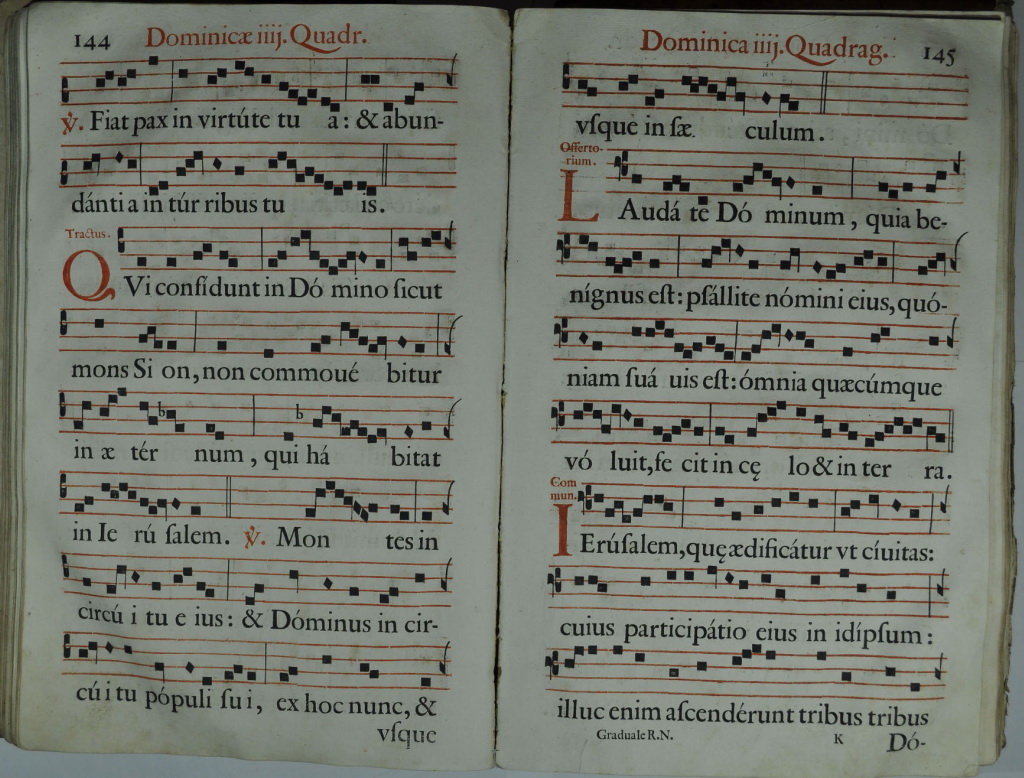 144 Dominicæ iiij. Quadr.
℣. Fiat pax in virtúte tu a: & abun-
dánti a in túr ribus tu is.
Tractus.
QVi confidunt in Dó mino ſicut
mons Si on, non commoué bitur
in æ tér num, qui há bitat
in Ie rú ſalem. ℣. Mon tes in
circú i tu e ius: & Dóminus in cir-
cúi tu pópuli ſu i, ex hoc nunc, &
vſque
Dominica iiij. Quadrag. 145
vſque in ſæ culum.
Offerto-
rium.
LAudá te Dó minum, quia be-
nígnus eſt: pſállite nómini eius, quó-
niam ſuá uis eſt: ómnia quæcúmque
vó luit, fe cit in cę lo & in ter ra.
Com
mun.
IErúſalem, quę ædificátur vt cíuitas:
cuius participátio eius in idípſum:
illuc enim aſcendérunt tribus tribus
Graduale R.N. K Dó-